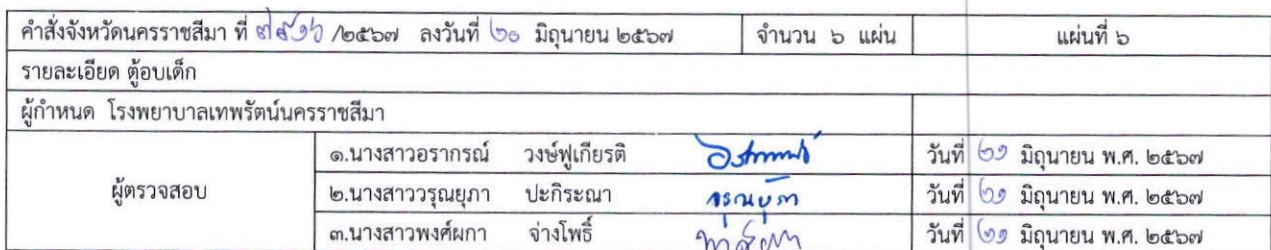 คำสั่งจังหวัดนครราชสีมา ที่ /๒๕๖๗ ลงวันที่ ๒๐ มิถุนายน ๒๕๖๗ จำนวน ๖ แผ่น แผ่นที่ ๖
รายละเอียด ตู้อบเด็ก
ผู้กำหนด โรงพยาบาลเทพรัตน์นครราชสีมา
๑.นางสาวอรากรณ์ วงษ์ฟูเกียรติ วันที่ ๒๑ มิถุนายน พ.ศ. ๒๕๖๗
ผู้ตรวจสอบ ๒.นางสาววรุณยุภา ปะกิระณา วรุณยุภา วันที่ ๒๑ มิถุนายน พ.ศ. ๒๕๖๗
๓.นางสาวพงศ์ผกา จ่างโพธิ์ วันที่ ๒๑ มิถุนายน พ.ศ. ๒๕๖๗